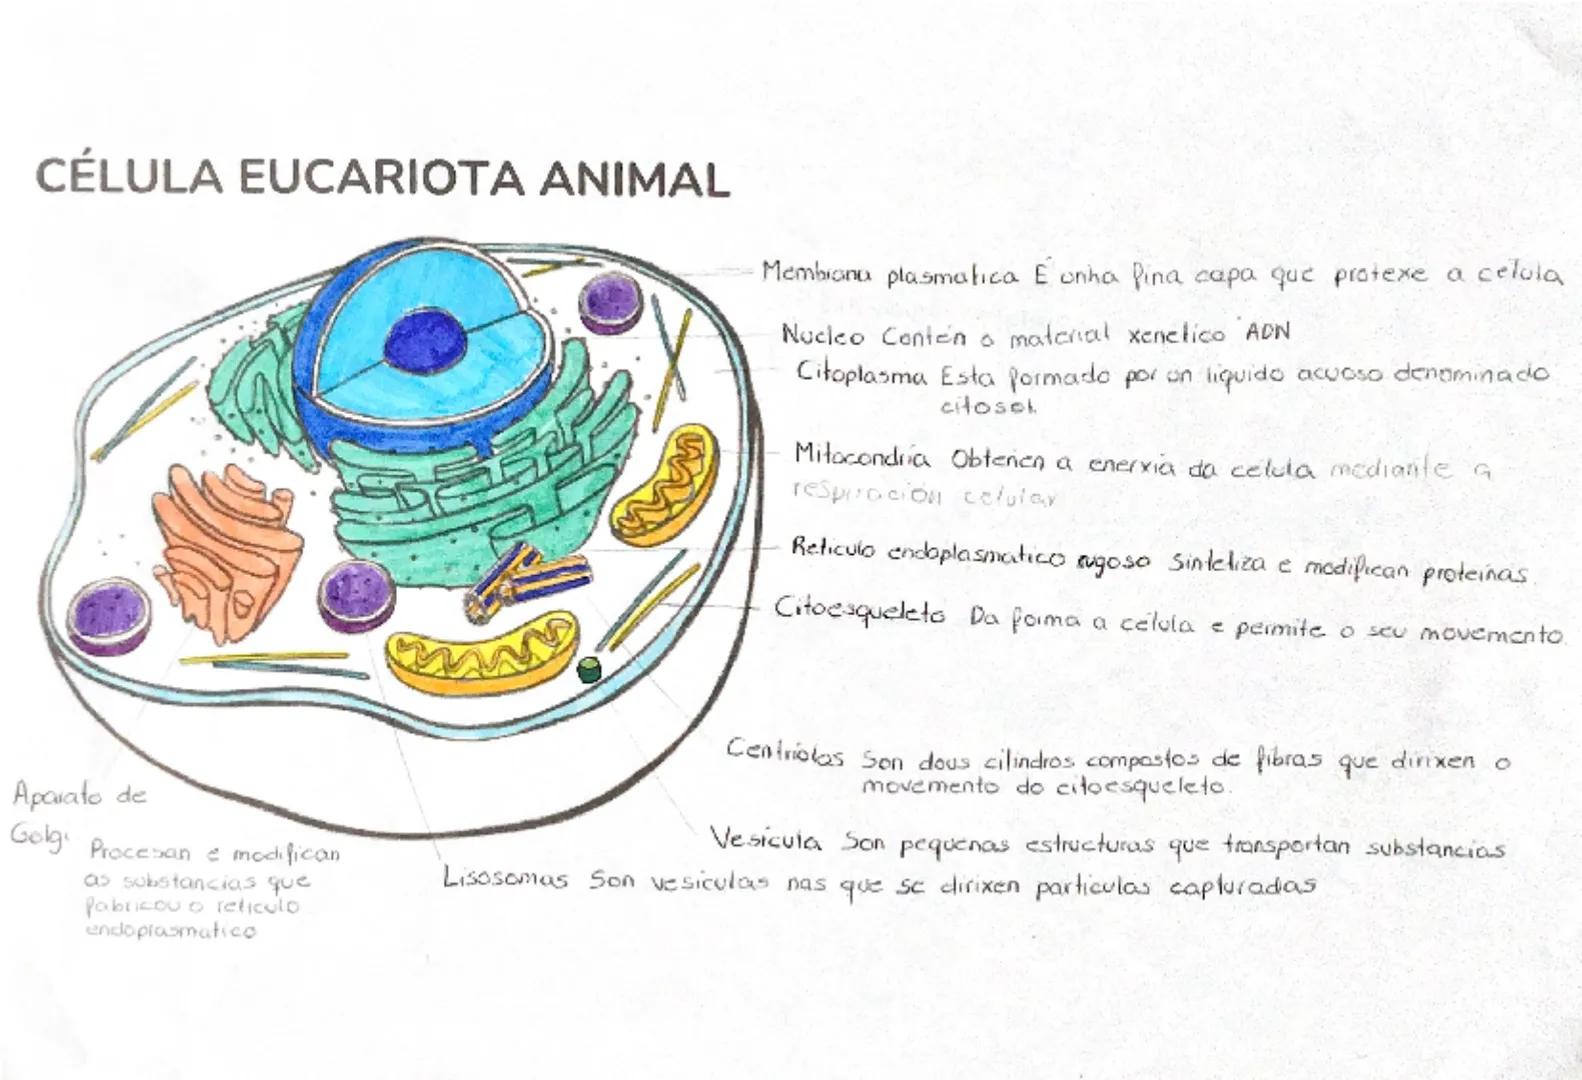 CÉLULA EUCARIOTA ANIMAL
Membrana plasmatica É unha fina capa que protexe a celula
Nucleo Contén o material xenetico ADN
Citoplasma Esta formado por un liquido acuoso denominado
citosol
Mitocondria Obtenen a enerxia da celula mediante a
respiración celular
Reticulo endoplasmatico rugoso Sintetiza e modifican proteinas.
Citoesqueleto Da forma a celula e permite o seu movemento.
Centriolos Son dous cilindros compostos de fibras que dirixen o
movemento do citoesqueleto.
Vesicula Son pequenas estructuras que transportan substancias
Lisosomas Son vesiculas nas que se dirixen particulas capturadas
Aparato de
Golgi
Procesan e modifican
as substancias que
fabricou o reticulo
endoplasmatico